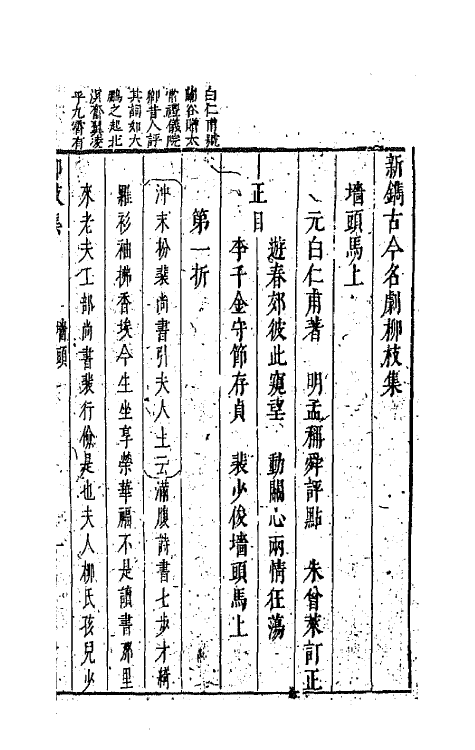 新鐫古今名劇柳枝集
墻頭馬上
元白仁甫著 明孟稱舜評點 朱曾萊訂正
正目
遊春郊彼此窺望 動關心兩情狂蕩
李千金守節存貞 裴少俊墻頭馬上
第一折
冲末扮裴尚書引夫人上云滿腹詩書七步才綺
羅衫袖拂香埃今生坐享榮華福不是讀書那里
來老夫工部尚書裴行儉是也夫人柳氏孩兒少
白仁甫號
蘭谷贈太
常禮儀院
卿昔人評
其詞如大
鵬之起北
溟奮翼凌
乎九霄有
墻頭